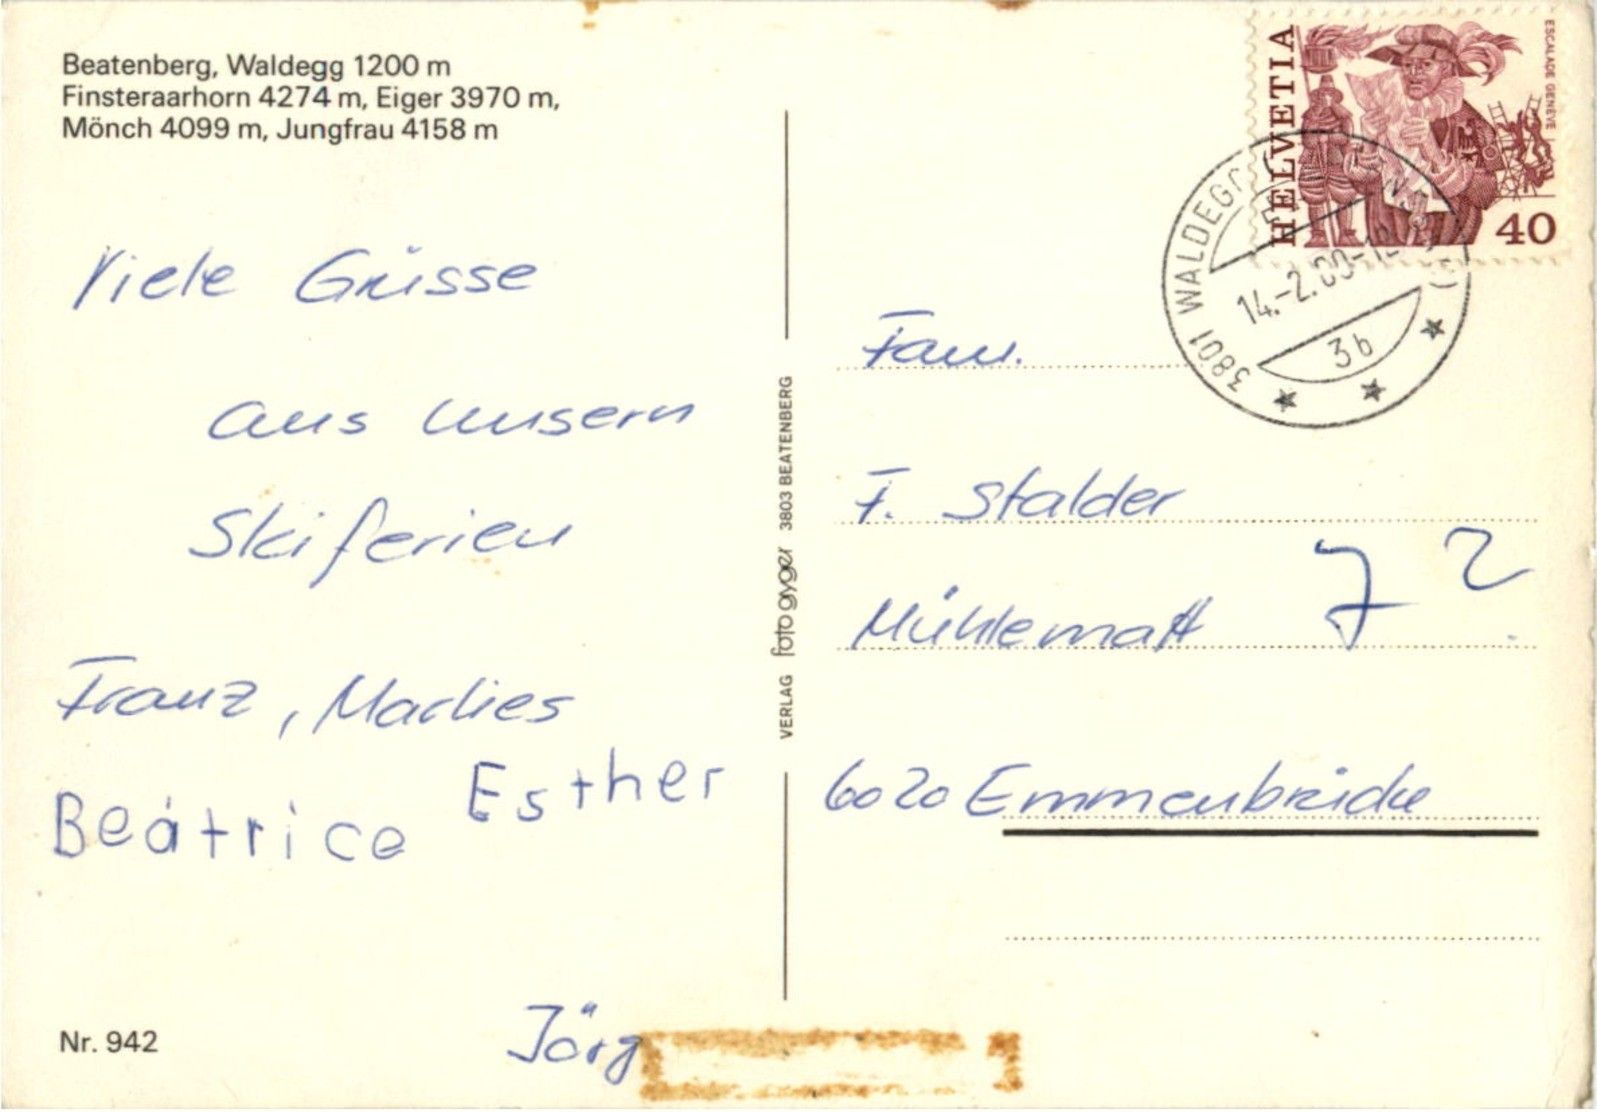 Beatenberg, Waldegg 1200 m
Finsteraarhorn 4274 m, Eiger 3970 m,
Mönch 4099 m, Jungfrau 4158 m
Viele Grüsse
aus unsern
Skiferien
Franz, Marlies
Beatrice Esther
Jörg
Nr. 942
VERLAG foto gyger 3803 BEATENBERG
HELVETIA
ESCALADE GENÈVE
40
3801 WALDEGG
14.-2.80-
3b
Fam.
F. Stalder
Mühlematt 72
6020 Emmenbrücke